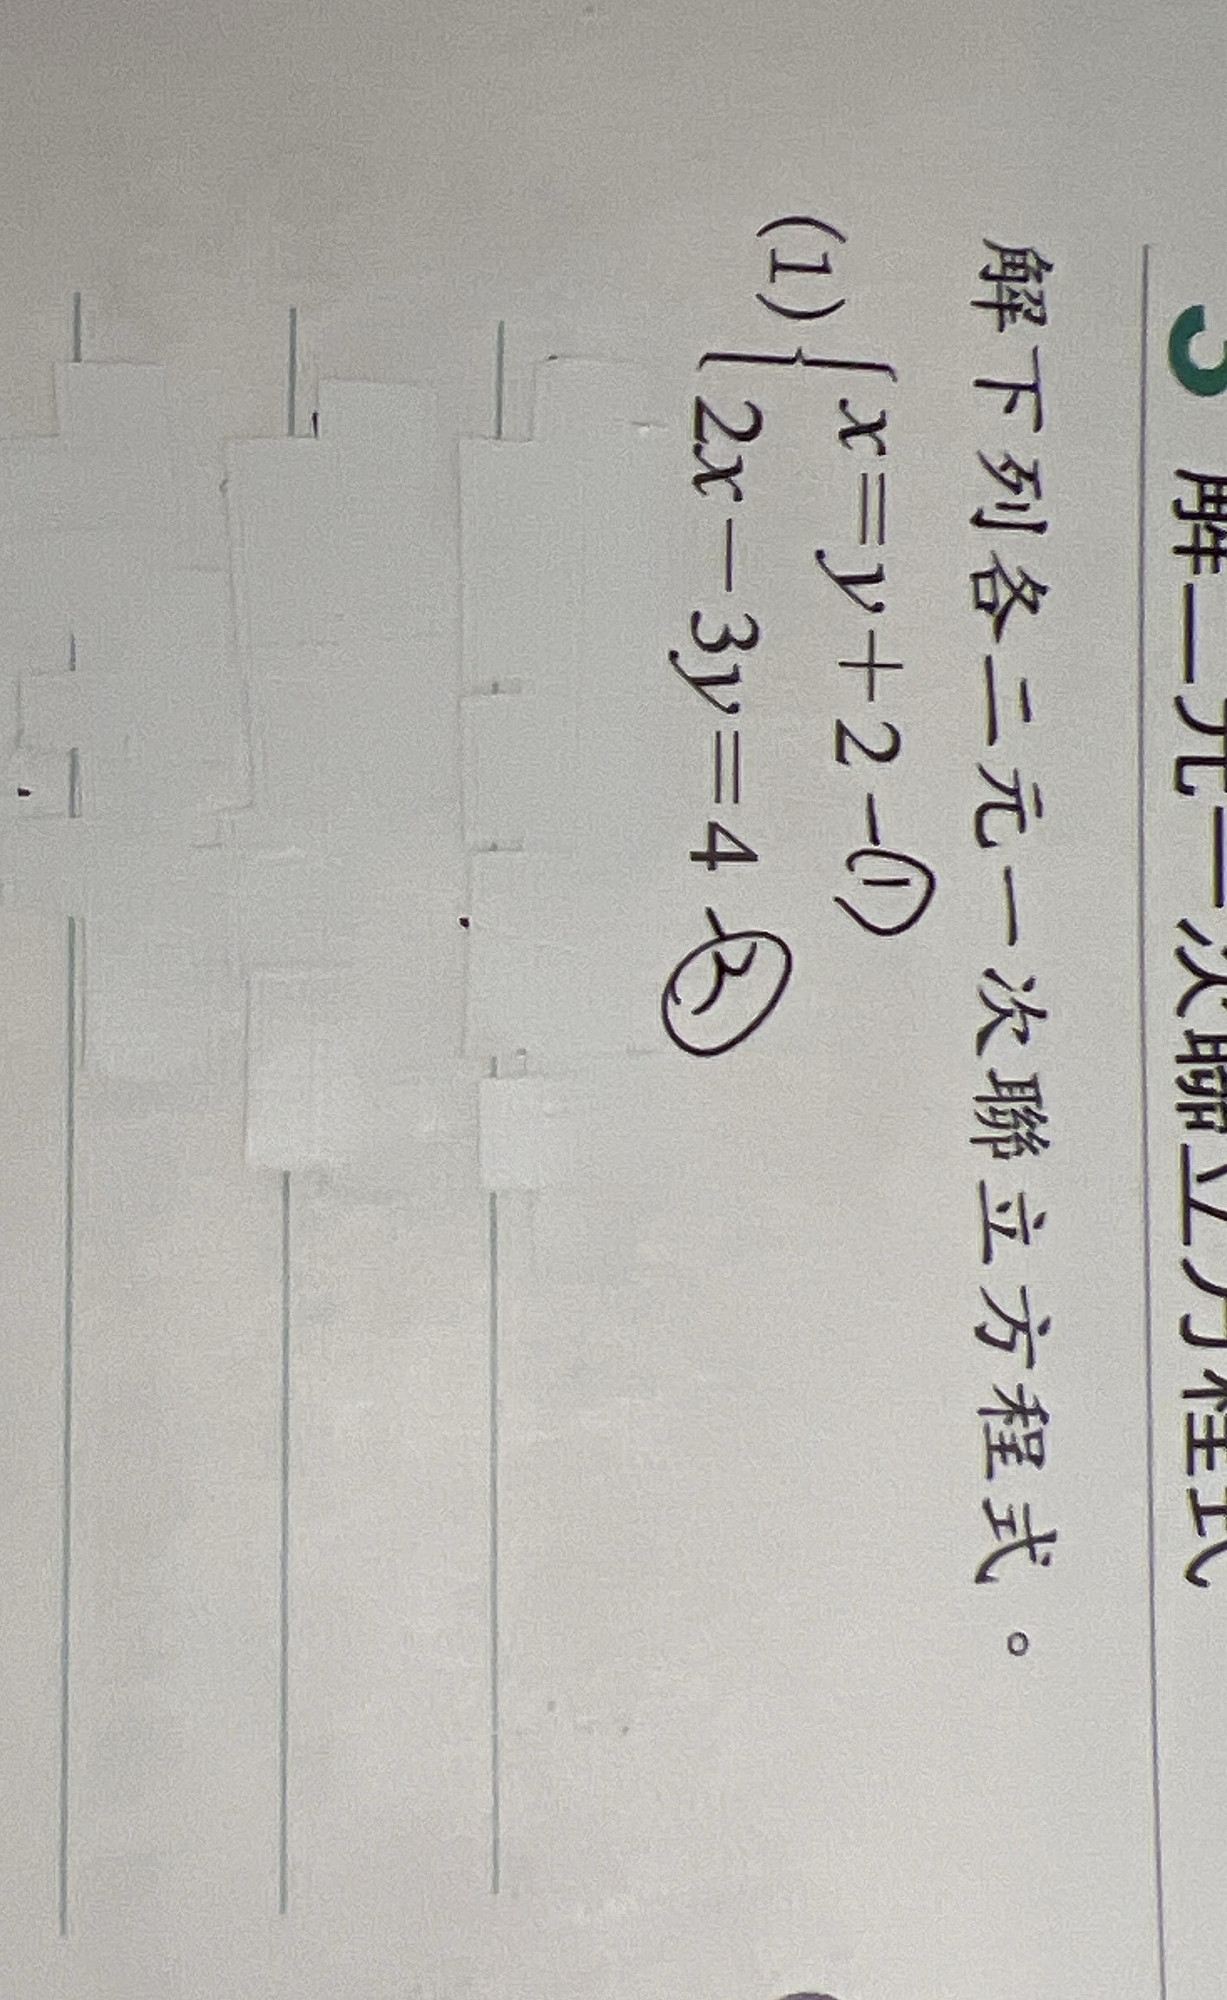 解二元一次聯立方程式
解下列各二元一次聯立方程式。
(1) { x=y+2 -①
2x-3y=4 -②